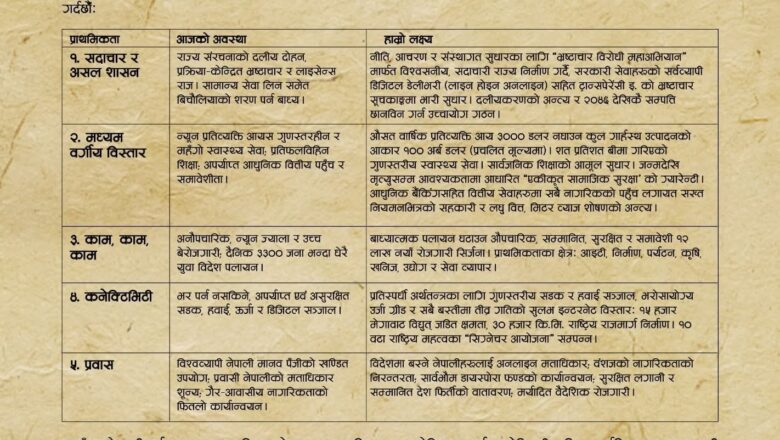 गर्दछौं:
प्राथमिकता
आजको अवस्था
हाम्रो लक्ष्य
१. सदाचार र
असल शासन
राज्य संरचनाको दलीय दोहन,
प्रक्रिया-केन्द्रित भ्रष्टाचार र लाइसेन्स
राज। सामान्य सेवा लिन समेत
बिचौलियाको शरण पर्न बाध्य।
नीति, आचरण र संस्थागत सुधारका लागि "भ्रष्टाचार विरोधी महाअभियान"
मार्फत विश्वसनीय, सदाचारी राज्य निर्माण गर्दै, सरकारी सेवाहरुको सर्वव्यापी
डिजिटल डेलीभरी (लाइन होइन अनलाइन) सहित ट्रान्सपेरेंसी इ. को भ्रष्टाचार
सूचकाङ्कमा भारी सुधार। दलीयकरणको अन्त्य र २०४६ देखिकै सम्पति
छानविन गर्न उच्चायोग गठन।
२. मध्यम
वर्गीय विस्तार
न्यून प्रतिव्यक्ति आयस गुणस्तरहीन र
महँगो स्वास्थ्य सेवा; प्रतिफलविहिन
शिक्षा; अपर्याप्त आधुनिक वित्तीय पहुँच र
समावेशीता।
औसत वार्षिक प्रतिव्यक्ति आय ३००० डलर नघाउन कूल गार्हस्थ उत्पादनको
आकार १०० अर्ब डलर (प्रचलित मूल्यमा)। शत प्रतिशत बीमा गरिएको
गुणस्तरीय स्वास्थ्य सेवा। सार्वजनिक शिक्षाको आमूल सुधार। जन्मदेखि
मृत्युसम्म आवश्यकतामा आधारित "एकीकृत सामाजिक सुरक्षा' को ग्यारेन्टी।
आधुनिक बैंकिंगसहित वित्तीय सेवाहरुमा सबै नागरिकको पहुँच लगायत सख्त
नियमनभित्रको सहकारी र लघु वित्त, मिटर ब्याज शोषणको अन्त्य।
३. काम, काम,
काम
अनौपचारिक, न्यून ज्याला र उच्च
बेरोजगारी; दैनिक २३०० जना भन्दा धेरै
युवा विदेश पलायन।
बाध्यात्मक पलायन घटाउन औपचारिक, सम्मानित, सुरक्षित र समावेशी १२
लाख नयाँ रोजगारी सिर्जना। प्राथमिकताका क्षेत्र: आइटी, निर्माण, पर्यटन, कृषि,
खनिज, उद्योग र सेवा व्यापार।
४. कनेक्टिभिटी
भर पर्न नसकिने, अपर्याप्त एवं असुरक्षित
सडक, हवाई, ऊर्जा र डिजिटल सञ्जाल।
प्रतिस्पर्धी अर्थतन्त्रका लागि गुणस्तरीय सडक र हवाई सञ्जाल, भरोसायोग्य
उर्जा ग्रीड र सबै बस्तीमा तीव्र गतिको सुलभ इन्टरनेट विस्तार: १५ हजार
मेगावाट विद्युत् जडित क्षमता, ३० हजार कि.मि. राष्ट्रिय राजमार्ग निर्माण। १०
वटा राष्ट्रिय महत्वका "सिग्नेचर आयोजना" सम्पन्न।
५. प्रवास
विश्वव्यापी नेपाली मानव पूँजीको खण्डित
उपयोग; प्रवासी नेपालीको मताधिकार
शून्य; गैर-आवासीय नागरिकताको
फितलो कार्यान्वयन।
विदेशमा बस्ने नेपालीहरुलाई अनलाइन मताधिकार; वंशजको नागरिकताको
निरन्तरता; सार्वभौम डायस्पोरा फण्डको कार्यान्वयन; सुरक्षित लगानी र
सम्मानित देश फिर्तीको वातावरण; मर्यादित वैदेशिक रोजगारी।